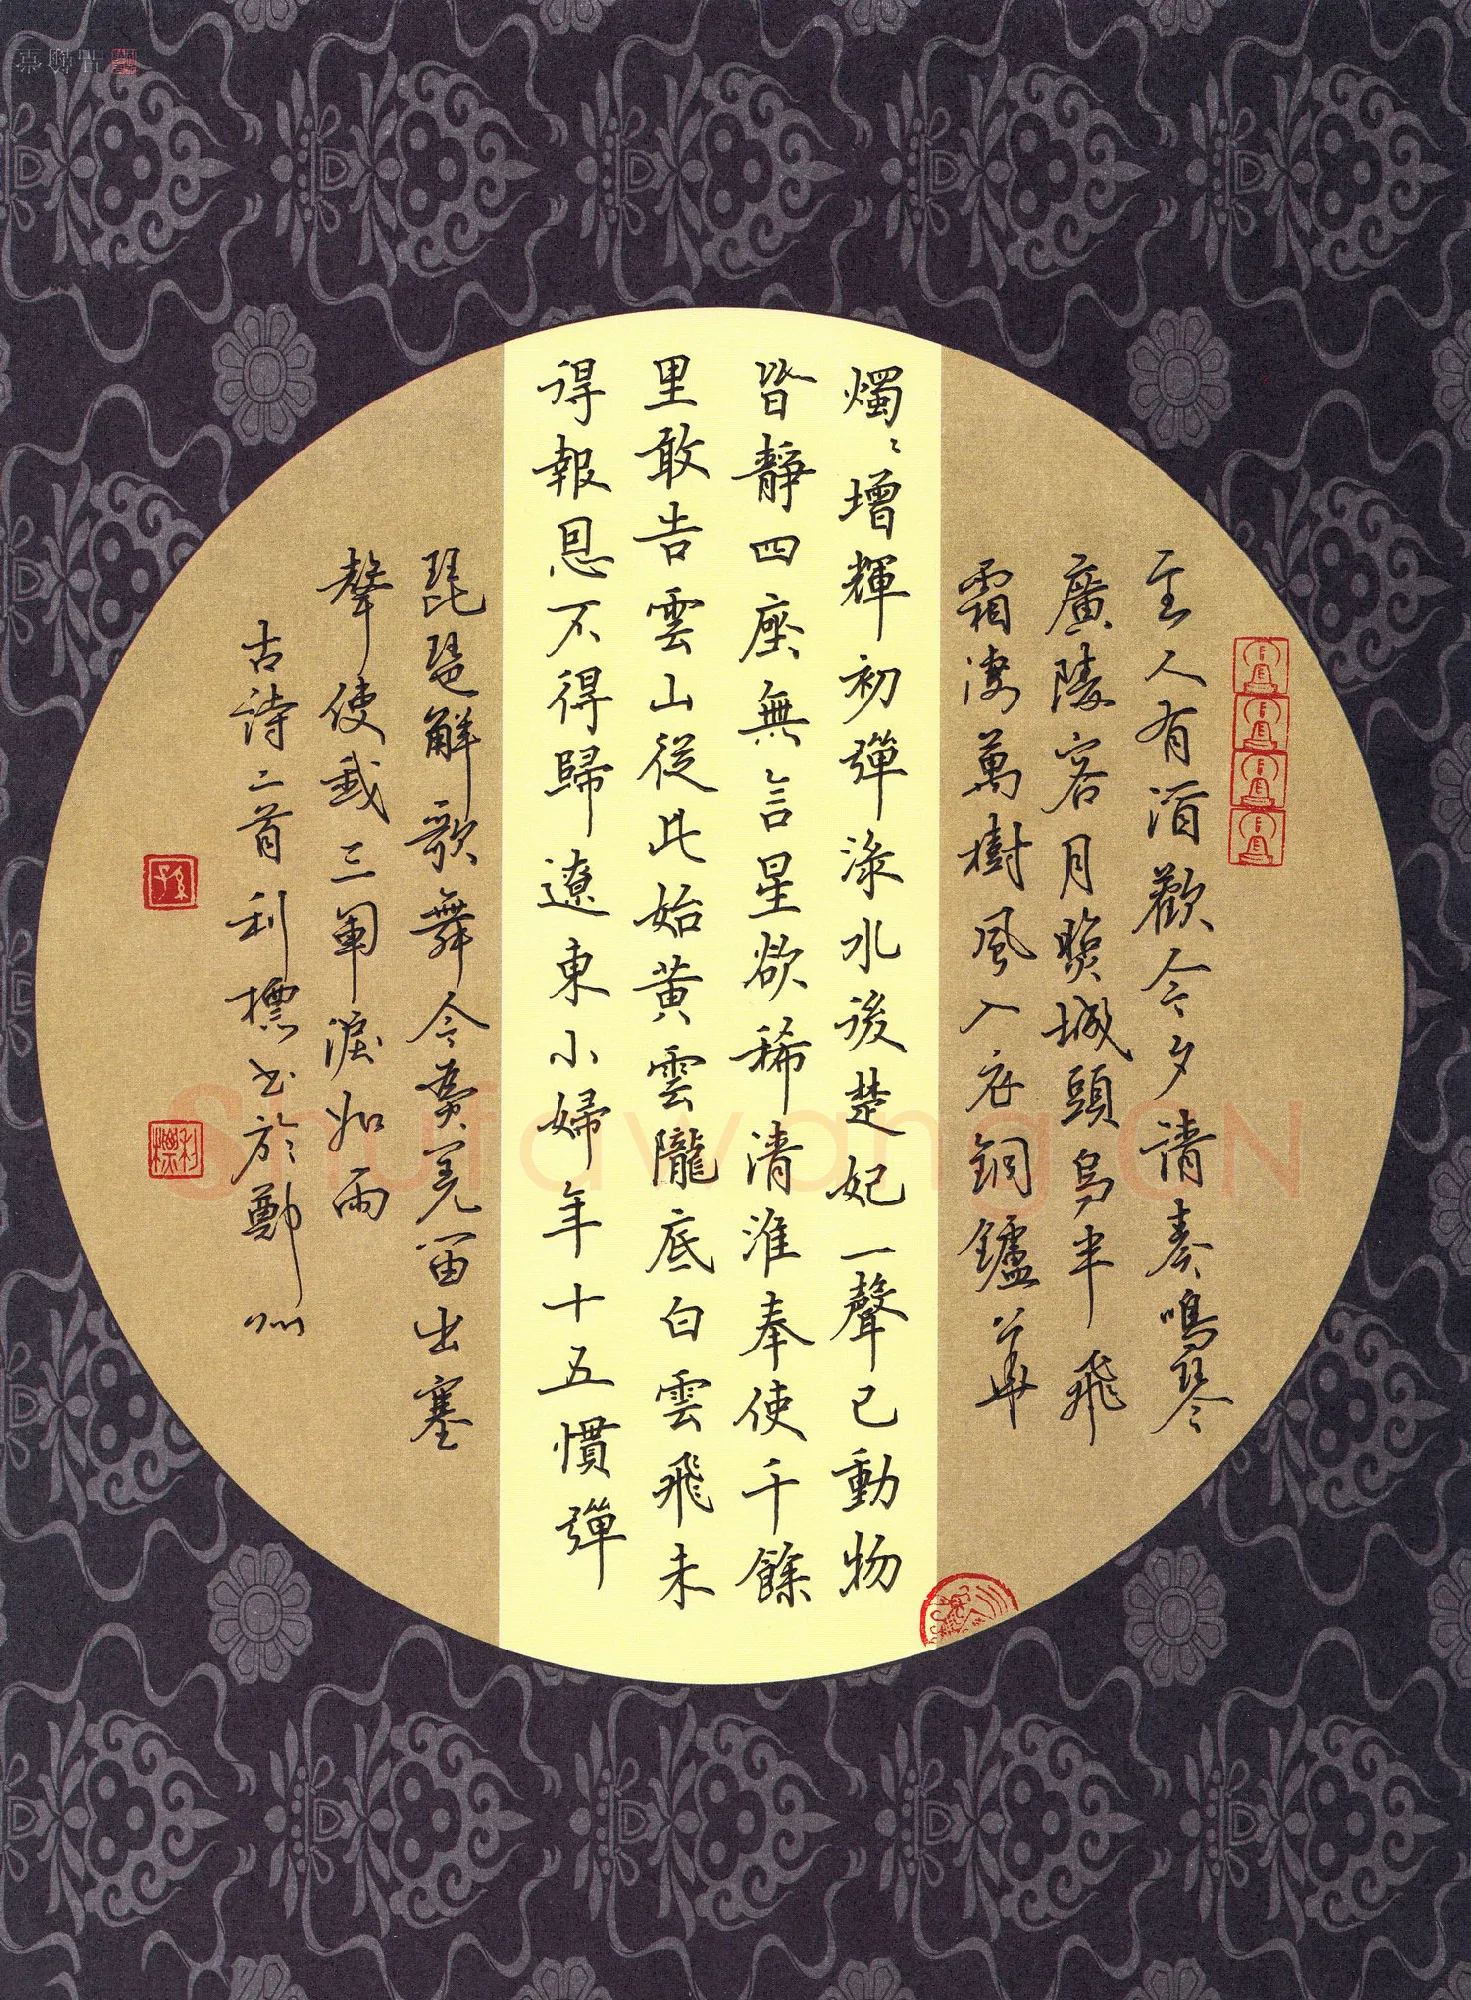 主人有酒歡今夕請奏鳴琴
廣陵客月照城頭烏半飛
霜淒萬樹風入衣銅鑪華
燭〻增輝初彈淥水後楚妃一聲已動物
皆靜四座無言星欲稀清淮奉使千餘
里敢告雲山從此始黃雲隴底白雲飛未
得報恩不得歸遼東小婦年十五慣彈
琵琶解歌舞今為羌笛出塞
聲使我三軍淚如雨
古詩二首利標書於鄭州
利標
ShufawangCN